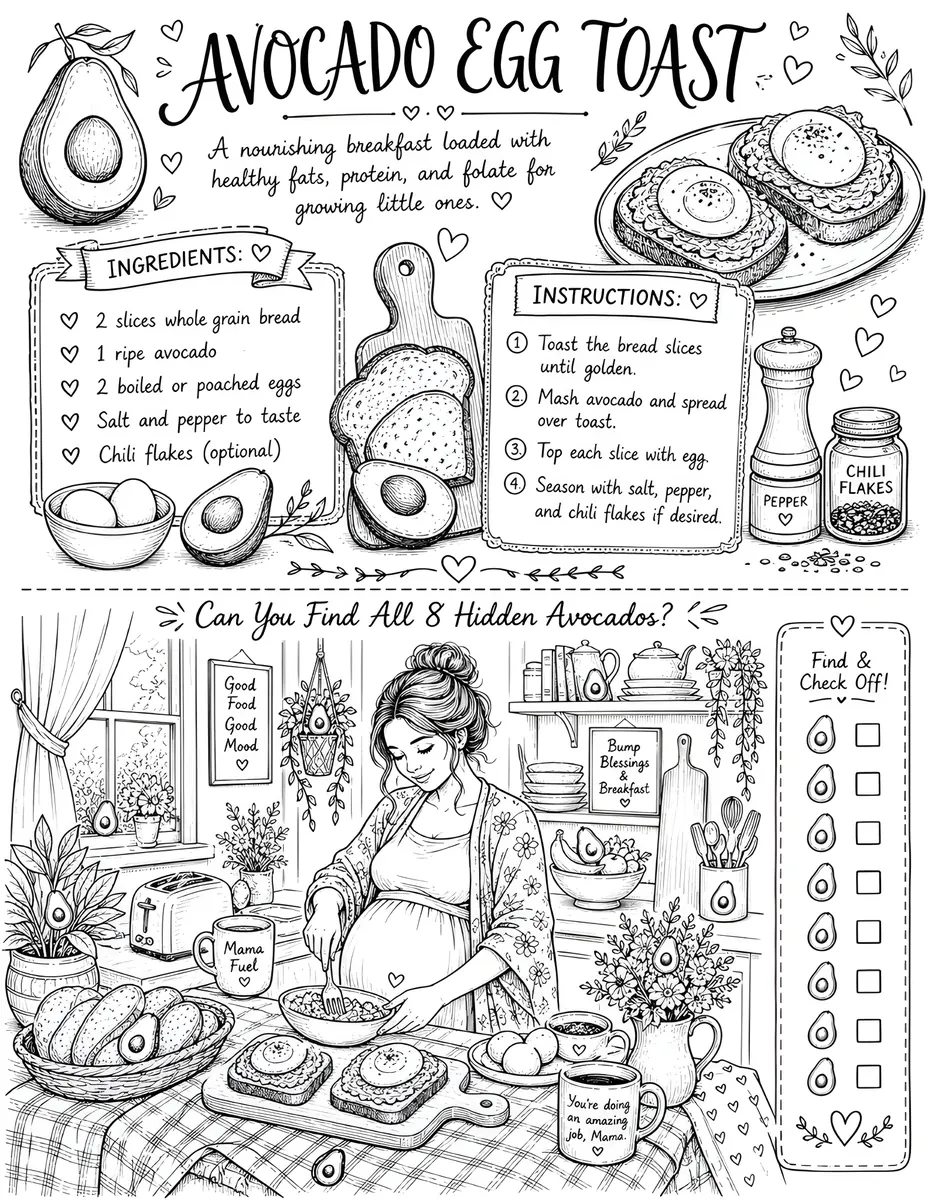 AVOCADO EGG TOAST
A nourishing breakfast loaded with
healthy fats, protein, and folate for
growing little ones.
INGREDIENTS:
2 slices whole grain bread
1 ripe avocado
2 boiled or poached eggs
Salt and pepper to taste
Chili flakes (optional)
INSTRUCTIONS:
1 Toast the bread slices
until golden.
2. Mash avocado and spread
over toast.
3. Top each slice with egg.
4. Season with salt, pepper,
and chili flakes if desired.
PEPPER
CHILI
FLAKES
Can You Find All 8 Hidden Avocados?
Good
Food
Good
Mood
Bump
Blessings
&
Breakfast
Mama
Fuel
You're doing
an amazing
job, Mama.
Find &
Check Off!